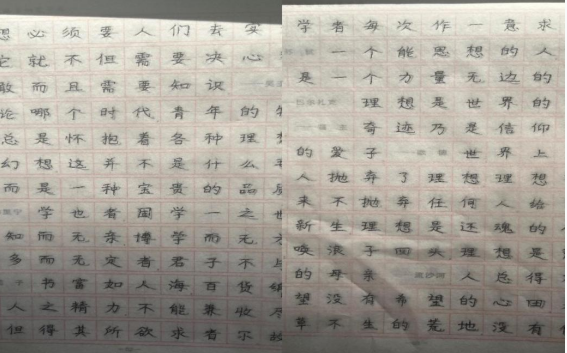 想必须要人们去实
它就不但需要决心
敢而且需要知识
论哪个时代青年的特
总是怀抱着各种理想
幻想这并不是什么毛
而是一种宝贵的品质
学也者固学一之也
知而无亲博学而无方
多而无定者君子不与
书富如人海百货
人之精力不能兼收尽
但得其所欲求者尔故
学者每次作一意求
一个能思想的人
是一个力量无边的
理想是世界的
奇迹乃是信仰
的爱子 世界上
人抛弃了理想理想
未不抛弃任何人给
新生理想是还魂的
唤浪子回头理想是
的母亲 人总得
望没有希望的心田
草不生的荒地没有